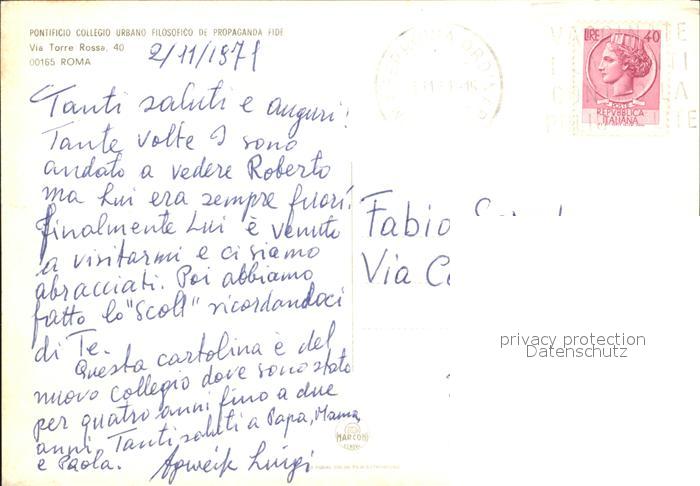 PONTIFICIO COLLEGIO URBANO FILOSOFICO DE PROPAGANDA FIDE
Via Torre Rossa, 40
00165 ROMA
2/11/1971
Tanti saluti e auguri!
Tante volte I sono
andato a vedere Roberto
ma Lui era sempre fuori.
Finalmente Lui è venuto
a visitarmi e ci siamo
abracciati. Poi abbiamo
fatto lo "Scoll" ricordandoci
di Te.
Questa cartolina è del
nuovo collegio dove sono stato
per quattro anni fino a due
anni. Tanti saluti a Papa, Mama,
e Paola.
Luigi
LIRE 40
POSTE
REPVBBLICA
ITALIANA
Fabio
Via
privacy protection
Datenschutz
MARCONI